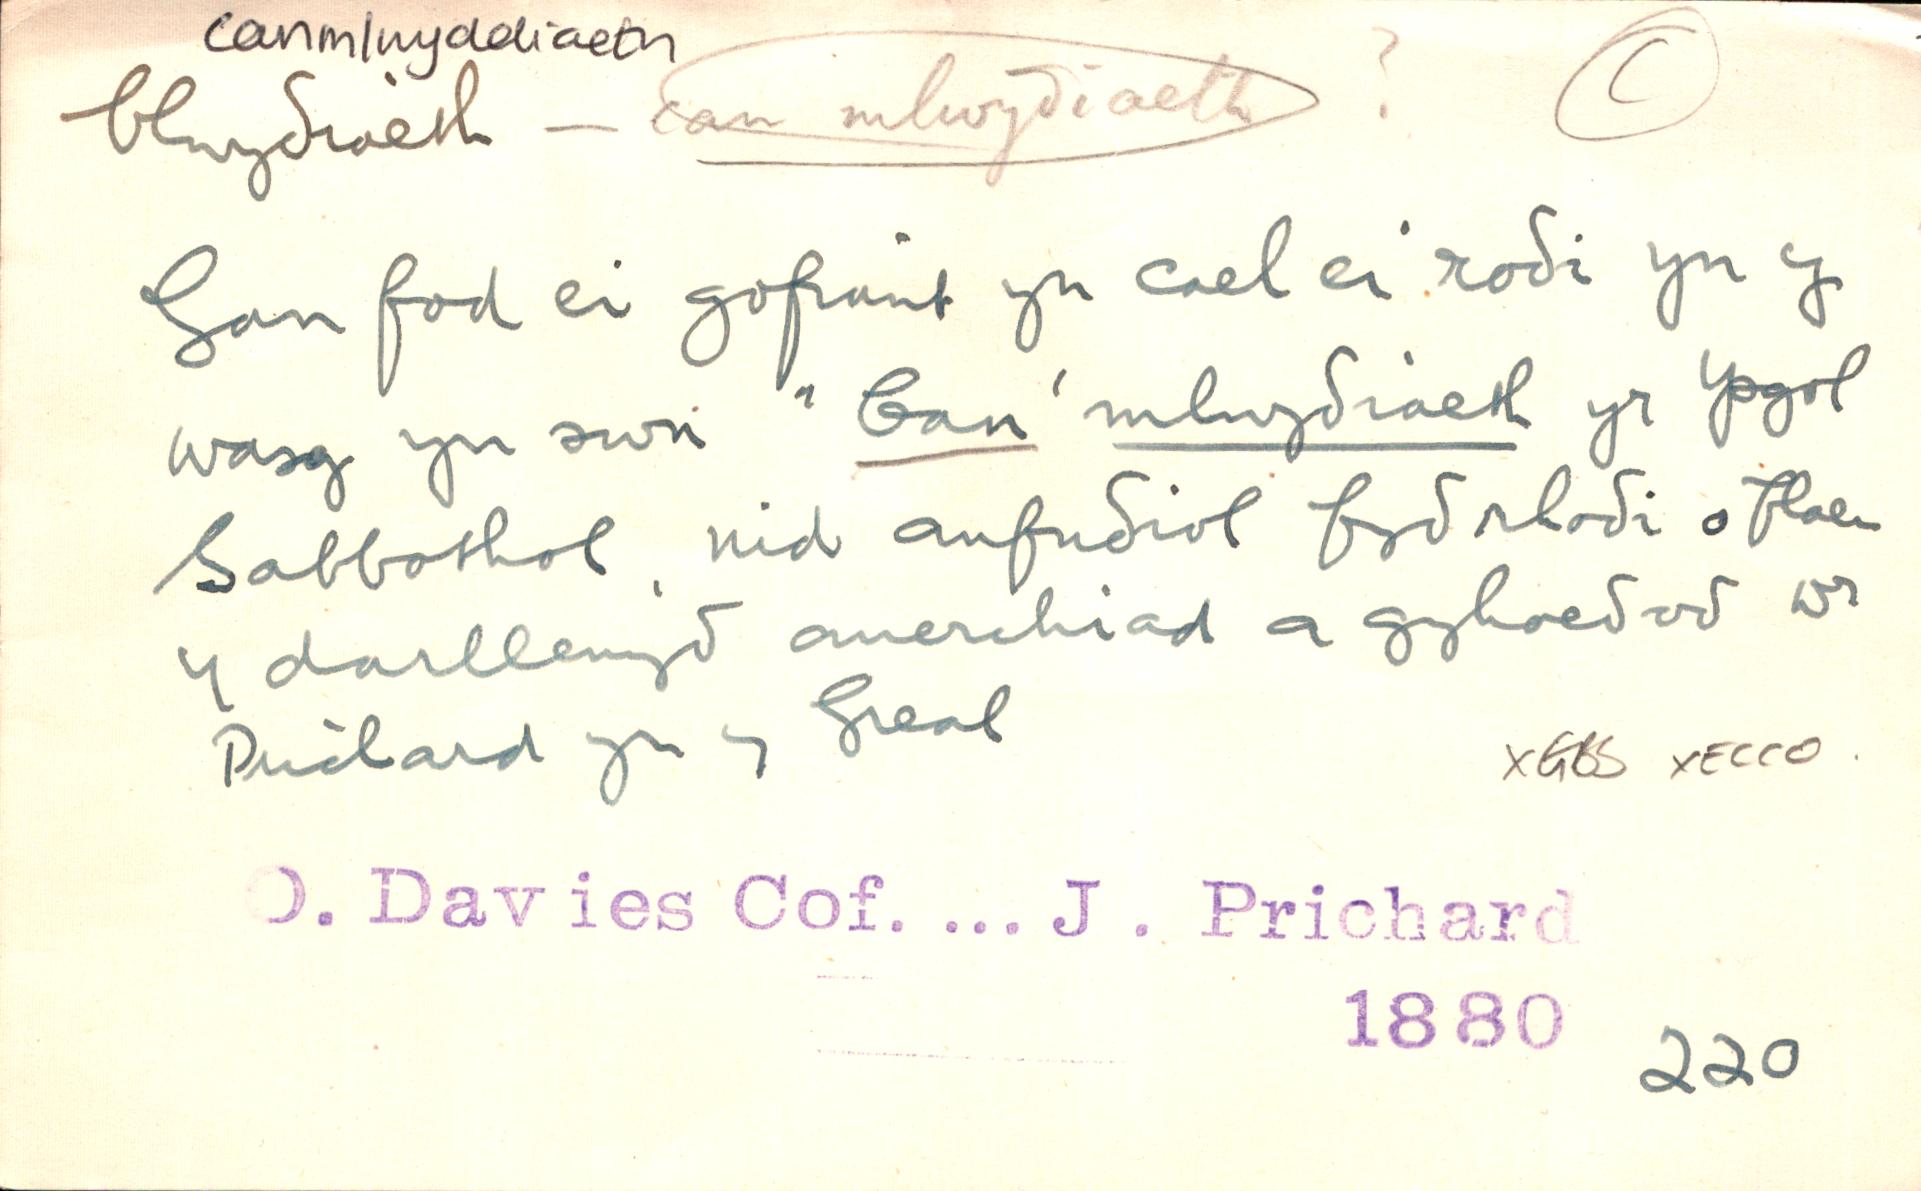 canmlwyddiaeth
blwyδiaeth — can mlwyδiaeth ? C
Gan fod ei gofiant yn cael ei roδi yn y
wasg yn swn "Can' mlwyδiaeth yr Ysgol
Sabbothol, nid anfuδiol fyδ rhoδi o flaen
y darllenyδ anerchiad a gyhoeδoδ Mr
Prichard yn y Greal
xGBS xECCO.
O. Davies Cof. ... J. Prichard
1880
220